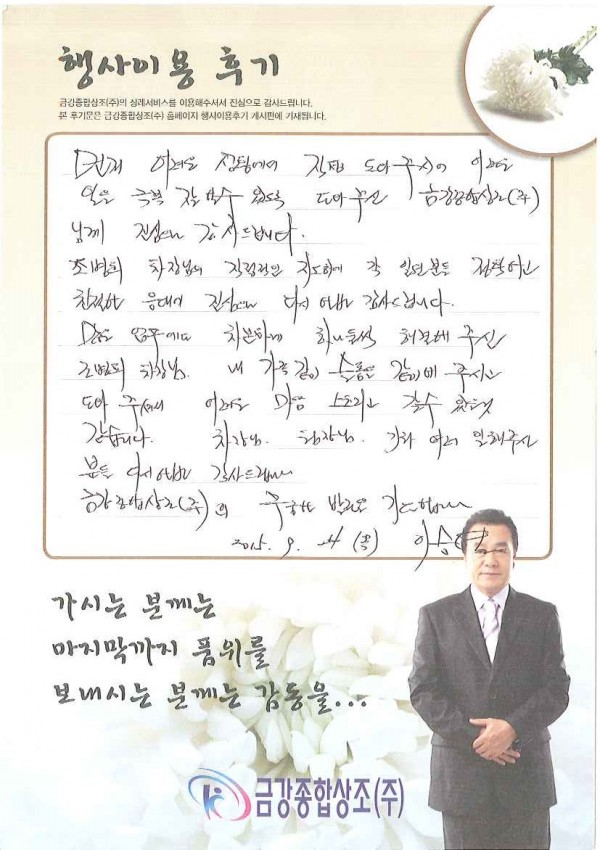 행사이용 후기
금강종합상조(주)의 상례서비스를 이용해주셔서 진심으로 감사드립니다.
본 후기문은 금강종합상조(주) 홈페이지 행사이용후기 게시판에 기재됩니다.
어려운 직접 도와 주시어 어려운
일을 극복 할 수 있도록 도와주신 금강종합상조(주)
님께 진심으로 감사드립니다.
조병희 차장님의 직접적인 지도하에 각
친절한 응대에 진심으로 다시 한번 감사드립니다.
업무에도 차분하게 하나둘씩 해결해 주신
조병희 차장님. 내 가족같이 슬픔을 같이해 주시고
도와 주셔서 어려운 마음 갈수 있을것
같습니다. 차장님. 팀장님. 각자 여러 일해주신
분들 다시한번 감사드립니다
금강종합상조(주)의 무궁한 발전을
2015. 9. 24 (목) 이승
가시는 분께는
마지막까지 품위를
보내시는 분께는 감동을...
금강종합상조(주)